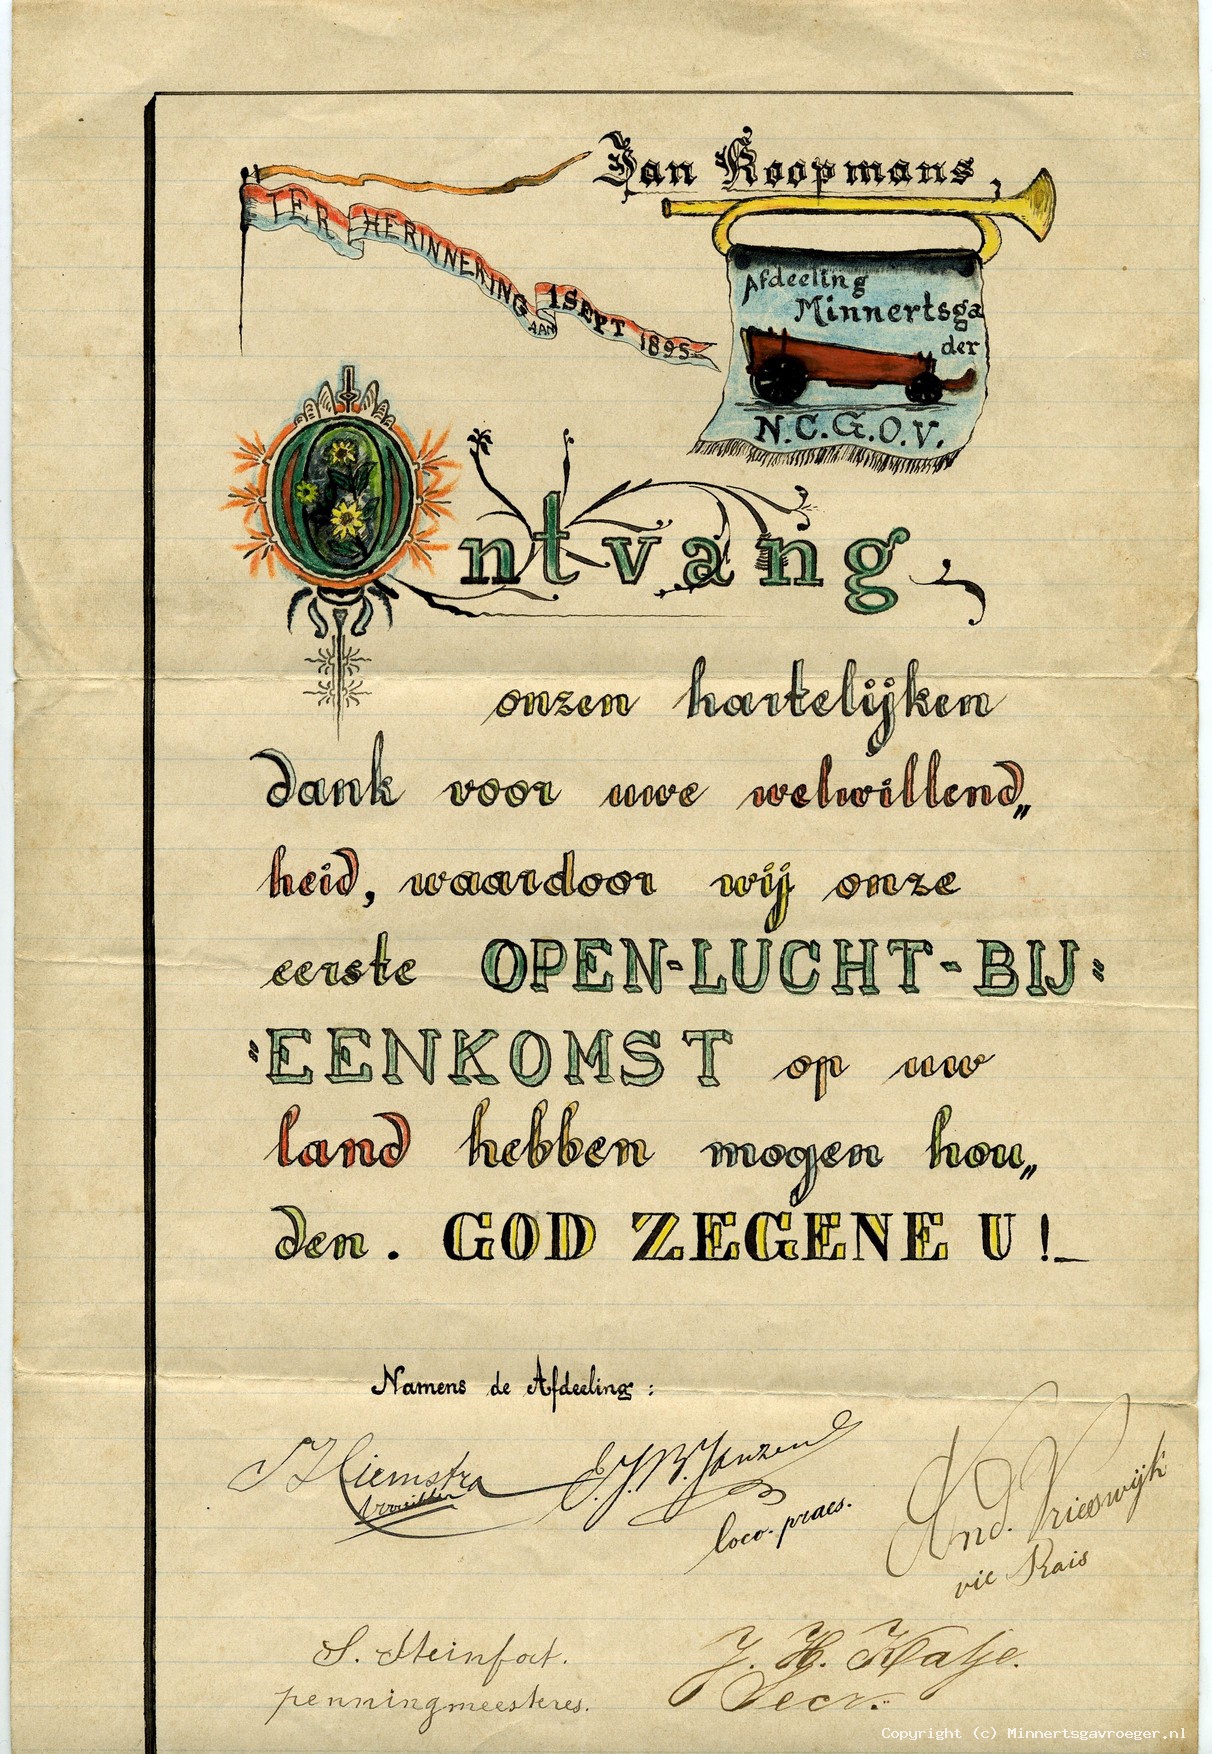 Jan Koopmans,
TER HERINNERING AAN 1 SEPT 1895
Afdeeling
Minnertsga
der
N.C.G.O.V.
Ontvang
onzen hartelijken
dank voor uwe welwillend„
heid, waardoor wij onze
eerste OPEN-LUCHT-BIJ=
=EENKOMST op uw
land hebben mogen hou„
den. GOD ZEGENE U!
Namens de Afdeeling:
Hiemstra
Voorzitter
J. B. Janzen
loco-praes.
And. Vrieswijk
vic Prais
S. Steinfort.
penningmeesteres.
J. H. Katje.
Secr.
Copyright (c) Minnertsgavroeger.nl